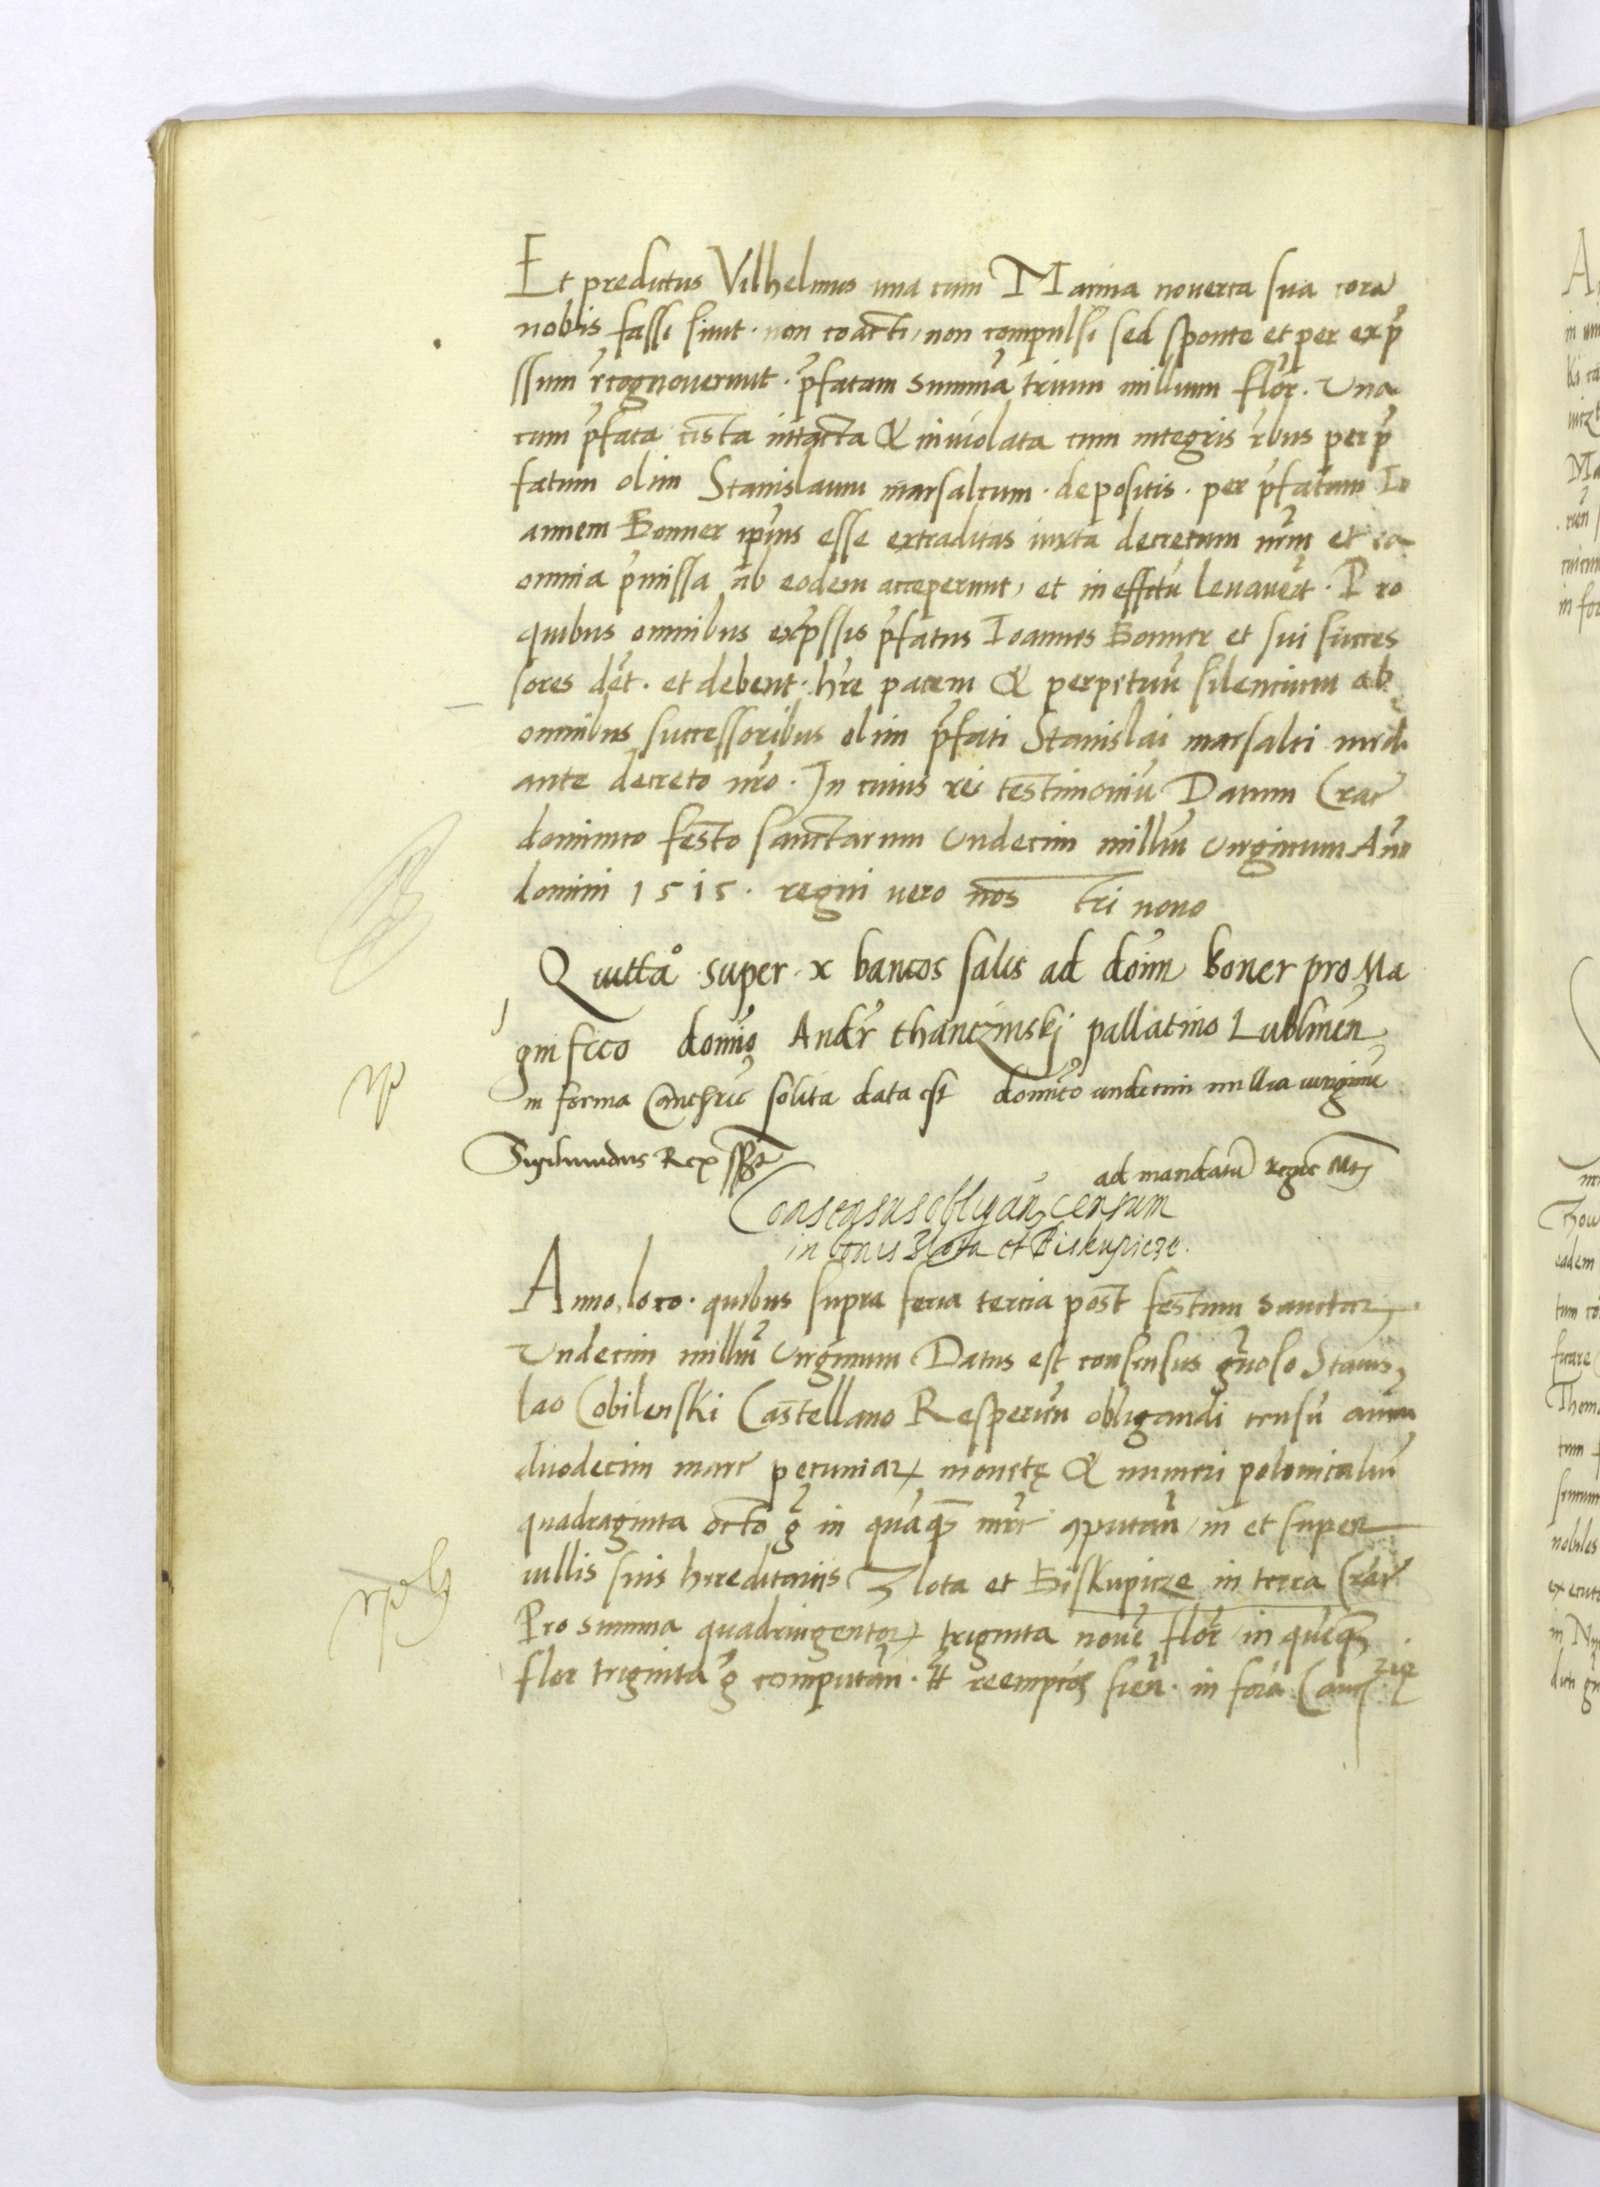 Et predictus Vilhelmus una cum Marina noverca sua corā
nobis fassi sunt · non coacti, non compulsi sed sponte et per exp̄
ssum r̄cognoverunt · p̄fatam summā trium millium flor̄ · una
cum p̄fata cista intacta & inviolata cum integris r̄bus per p̄
fatum olim Stanislaum marsalcum · depositis · per p̄fatum Io
annem Bonner ip̄ius esse extraditas iuxta decretum nr̄m et ea
omnia p̄missa ab eodem acceperunt, et in effctu levaver̄t · Pro
quibus omnibus exp̄ssis p̄fatus Ioannes Bonner et sui succes
sores de᷒t · et debent · hr̄e pacem & perpetuū silencium ab
omnibus successoribus olim p̄fati Stanislai marsalci med
ante decreto nr̄o · In cuius rei testimoniū Datum Crac̄
dominico festo sanctarum Undecim milliū virginum Anno
domini 1515 · regni vero nos tri nono
Quitta° super · x bancos salis ad doīm boner pro Ma
gnifico domīo Andr̄ thanczinskj pallatino Lublinen̄
in forma Canc solita data est domīco undecim millia virginū
Sigismundus Rex sspt
ad mandatū regie Mtis
Consensus obligan̄ censum
in bonis Zlota et Biskupicze.
Anno, loco · quibus supra feria tercia post festum sanctarꝝ
Undecim milliū virginum Datus est consensus gn̄oso Stanis,
lao Cobilenski Castellano Rosperien̄ obligandi censū annu
duodecim marc̄ pecuniarꝝ monetę & numeri polonicaliū
quadraginta octo g̃ in quāqꝫ mr̄c ꝯputan̄, in et super
villis suis hereditariis Zlota et Biskupicze in terra Crac̄
Pro summa quadringentorꝝ triginta novē flor̄ in quēqꝫ
flor triginta g̃ computan̄ · tt reempcōꝫ fien̄ · in forā Canc